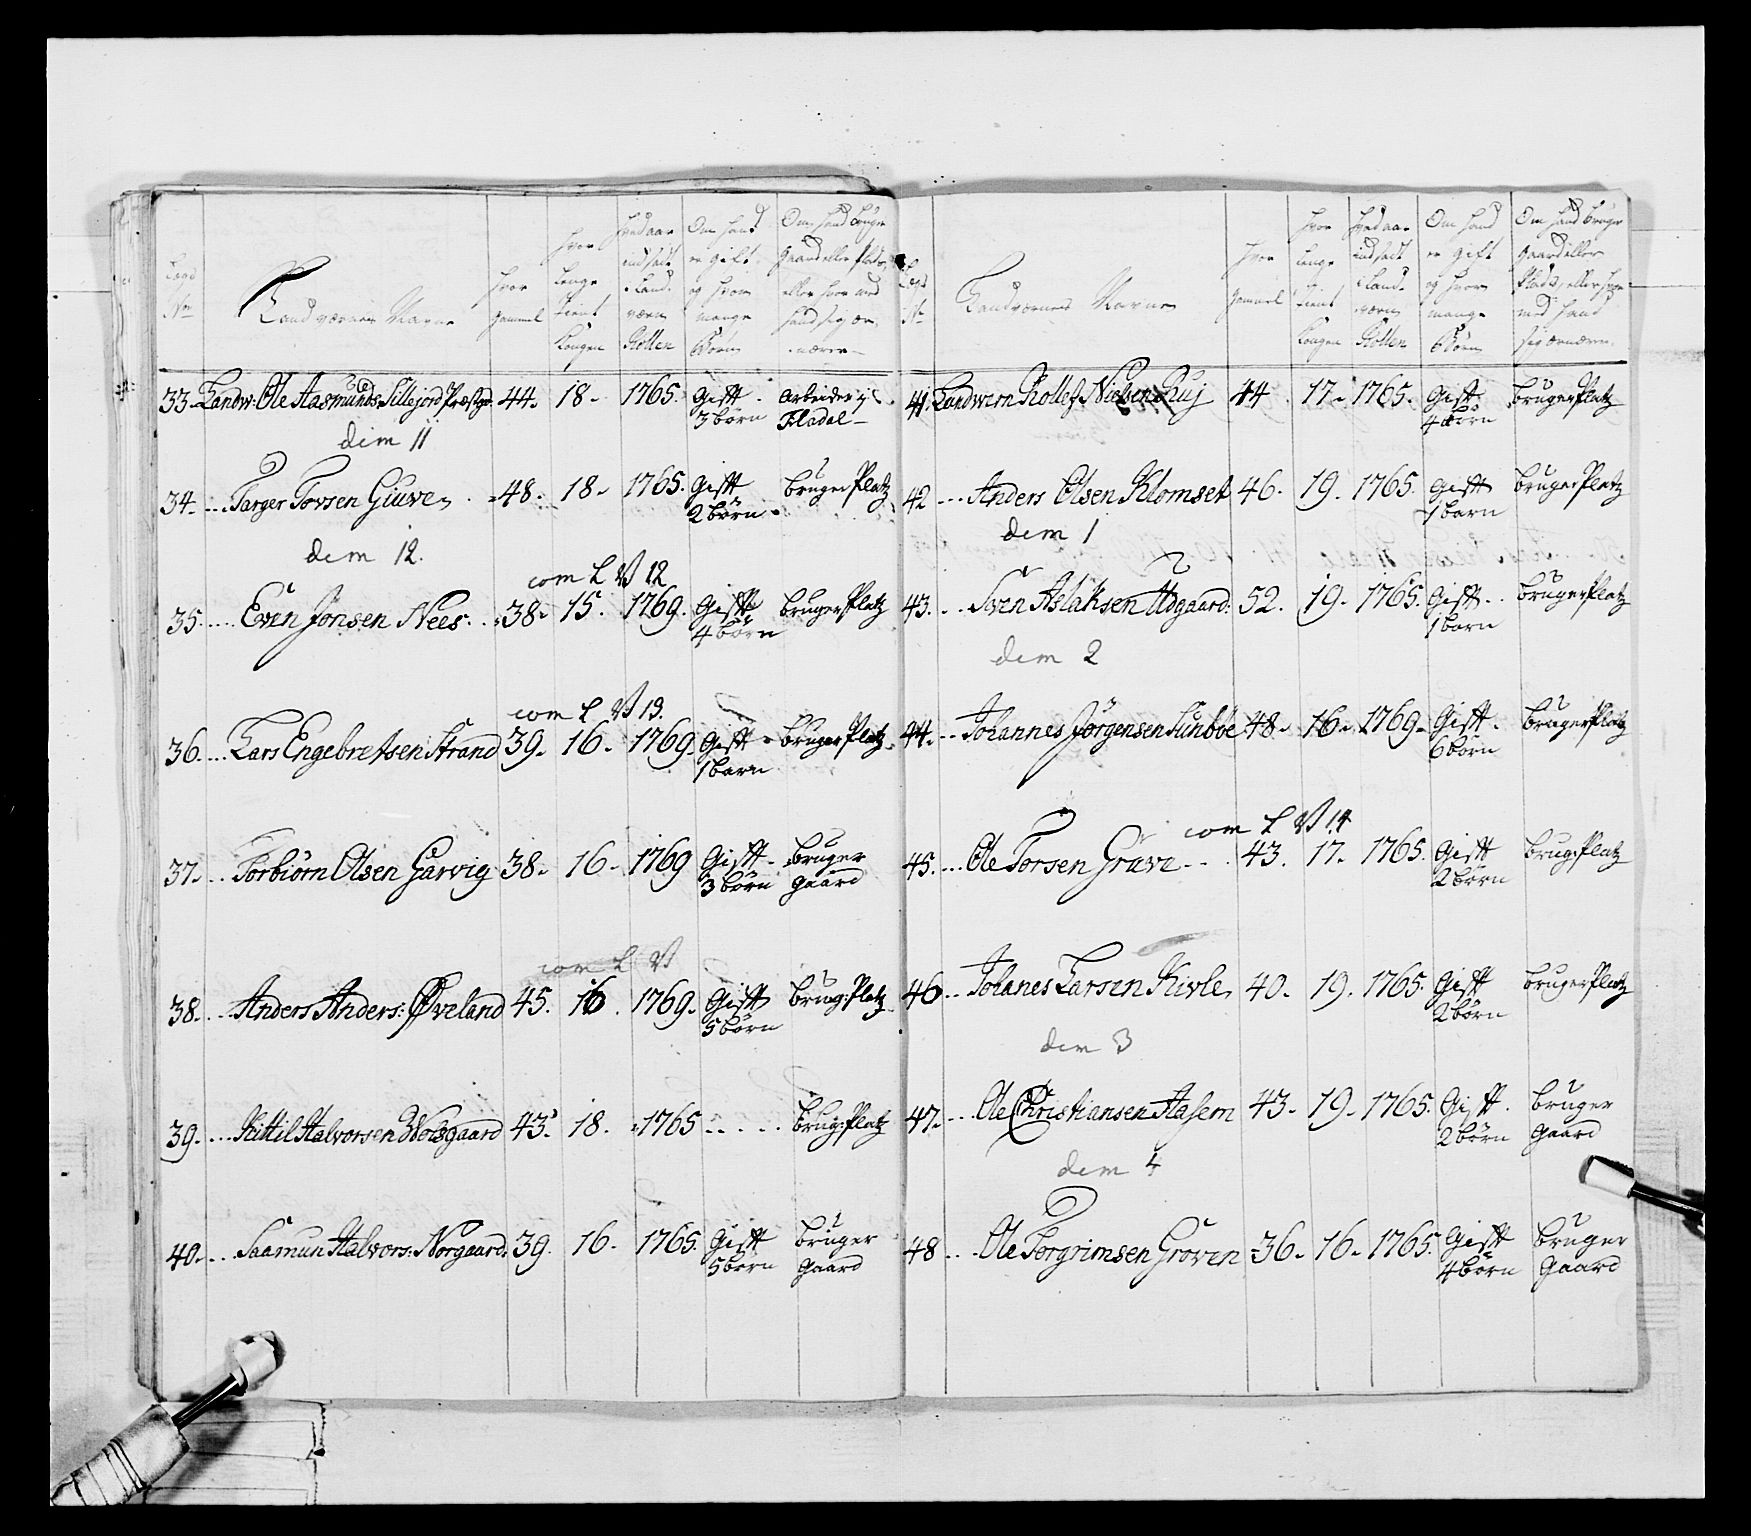 Legd
No
Landværnes Navne
Hvor
gammel
hvor
lenge
tient
Kongen
hvad aar
indsadt
i Land-
værn
Rollen
Om hand
er gift
og hvor
mange
Börn
Om hand bruger
gaard eller Plads,
eller hvor med
hand sig ær-
nærer
33. Landw: Ole Aasmunds: Sillejord Præstgr. 44. 18. 1765. Gift 3 börn arbeider i Fladal
dim 11
34. Targer Tovsen Giuve 48. 18. 1765. Gift 2 börn bruger Platz
dem 12.
com L V 12
35. Even Jonsen Nees 38. 15. 1769. Gift 4 börn bruger Platz
com L V 13.
36. Lars Engebretsen Strand 39. 16. 1769 Gift 1 barn bruger Platz
37. Torbiörn Olsen Garvig 38. 16. 1769 Gift 3 börn bruger gaard
com L V
38. Anders Anders: Øveland 45. 16. 1769. Gift 5 börn brug: Platz
39. Kittil Halvorsen Wolsgaard 43. 18. 1765 brug: Platz
40. Saamun Halvors: Norgaard 39. 16. 1765. Gift 5 börn bruger Gaard
Legd
No
Landværnes Navne
Hvor
gammel
hvor
lenge
tient
Kongen
hvad aar
indsadt
i Land-
værn
Rollen
Om hand
er gift
og hvor
mange
Börn
Om hand bruger
gaard eller
Plads, eller hvor
med hand
sig ærnærer
41. Landvern Rollef Nielsen Ruj 44 17. 1765. Gift 4 börn bruger Platz
42 Anders Olsen Klomset 46. 19. 1765. Gift 1 barn bruger Platz
dem 1
43. Sven Aslaksen Udgaard: 52. 19. 1765. Gift 1 barn bruger Platz
dem 2
44. Johannes Jörgensen Sunböe 48. 16. 1769. Gift 6 börn bruger Platz
com L V 14
45. Ole Torsen Grave 43. 17. 1765. Gift 2 börn brug: Platz
46. Johanes Larsen Kivle 40. 19. 1765. Gift 2 börn bruger Platz
dem 3
47. Ole Christiansen Aasem 43. 19. 1765. Gift 2 börn bruger Gaard
dem 4
48 Ole Torgrimsen Groven 36. 16. 1765. Gift 4 börn bruger Gaard